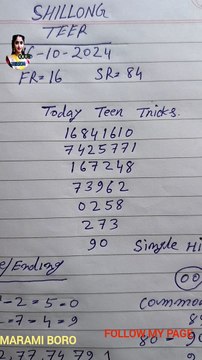 SHILLONG
TEER
6-10-2024
FR=16 SR=84
Today Teer Tricks.
16841610
7425771
167248
73962
0258
273
90 Simple Hi
e/Ending
00
-2=5=0 Common
-7=4=9
80-90
2,77,74,79
MARAMI BORO
FOLLOW MY PAGE